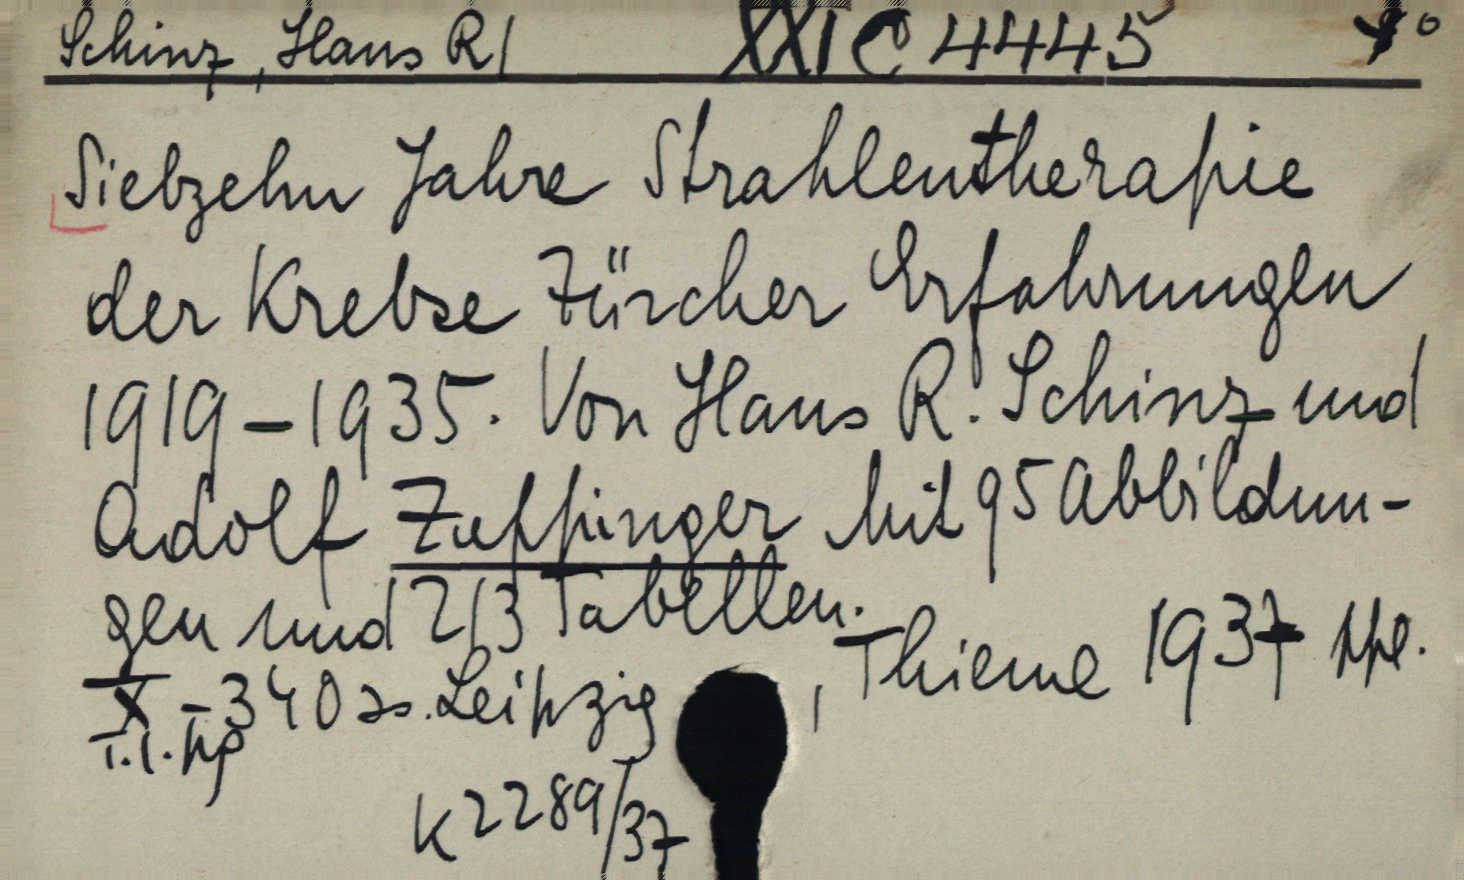 Schinz, Hans R/ XXI C 4445 8°
Siebzehn Jahre Strahlentherapie
der Krebse Zürcher Erfahrungen
1919-1935. Von Hans R. Schinz und
Adolf Zuppinger Mit 95 Abbildun-
gen und 213 Tabellen.
X - 340 s. Leipzig, Thieme 1937
K 2289/37